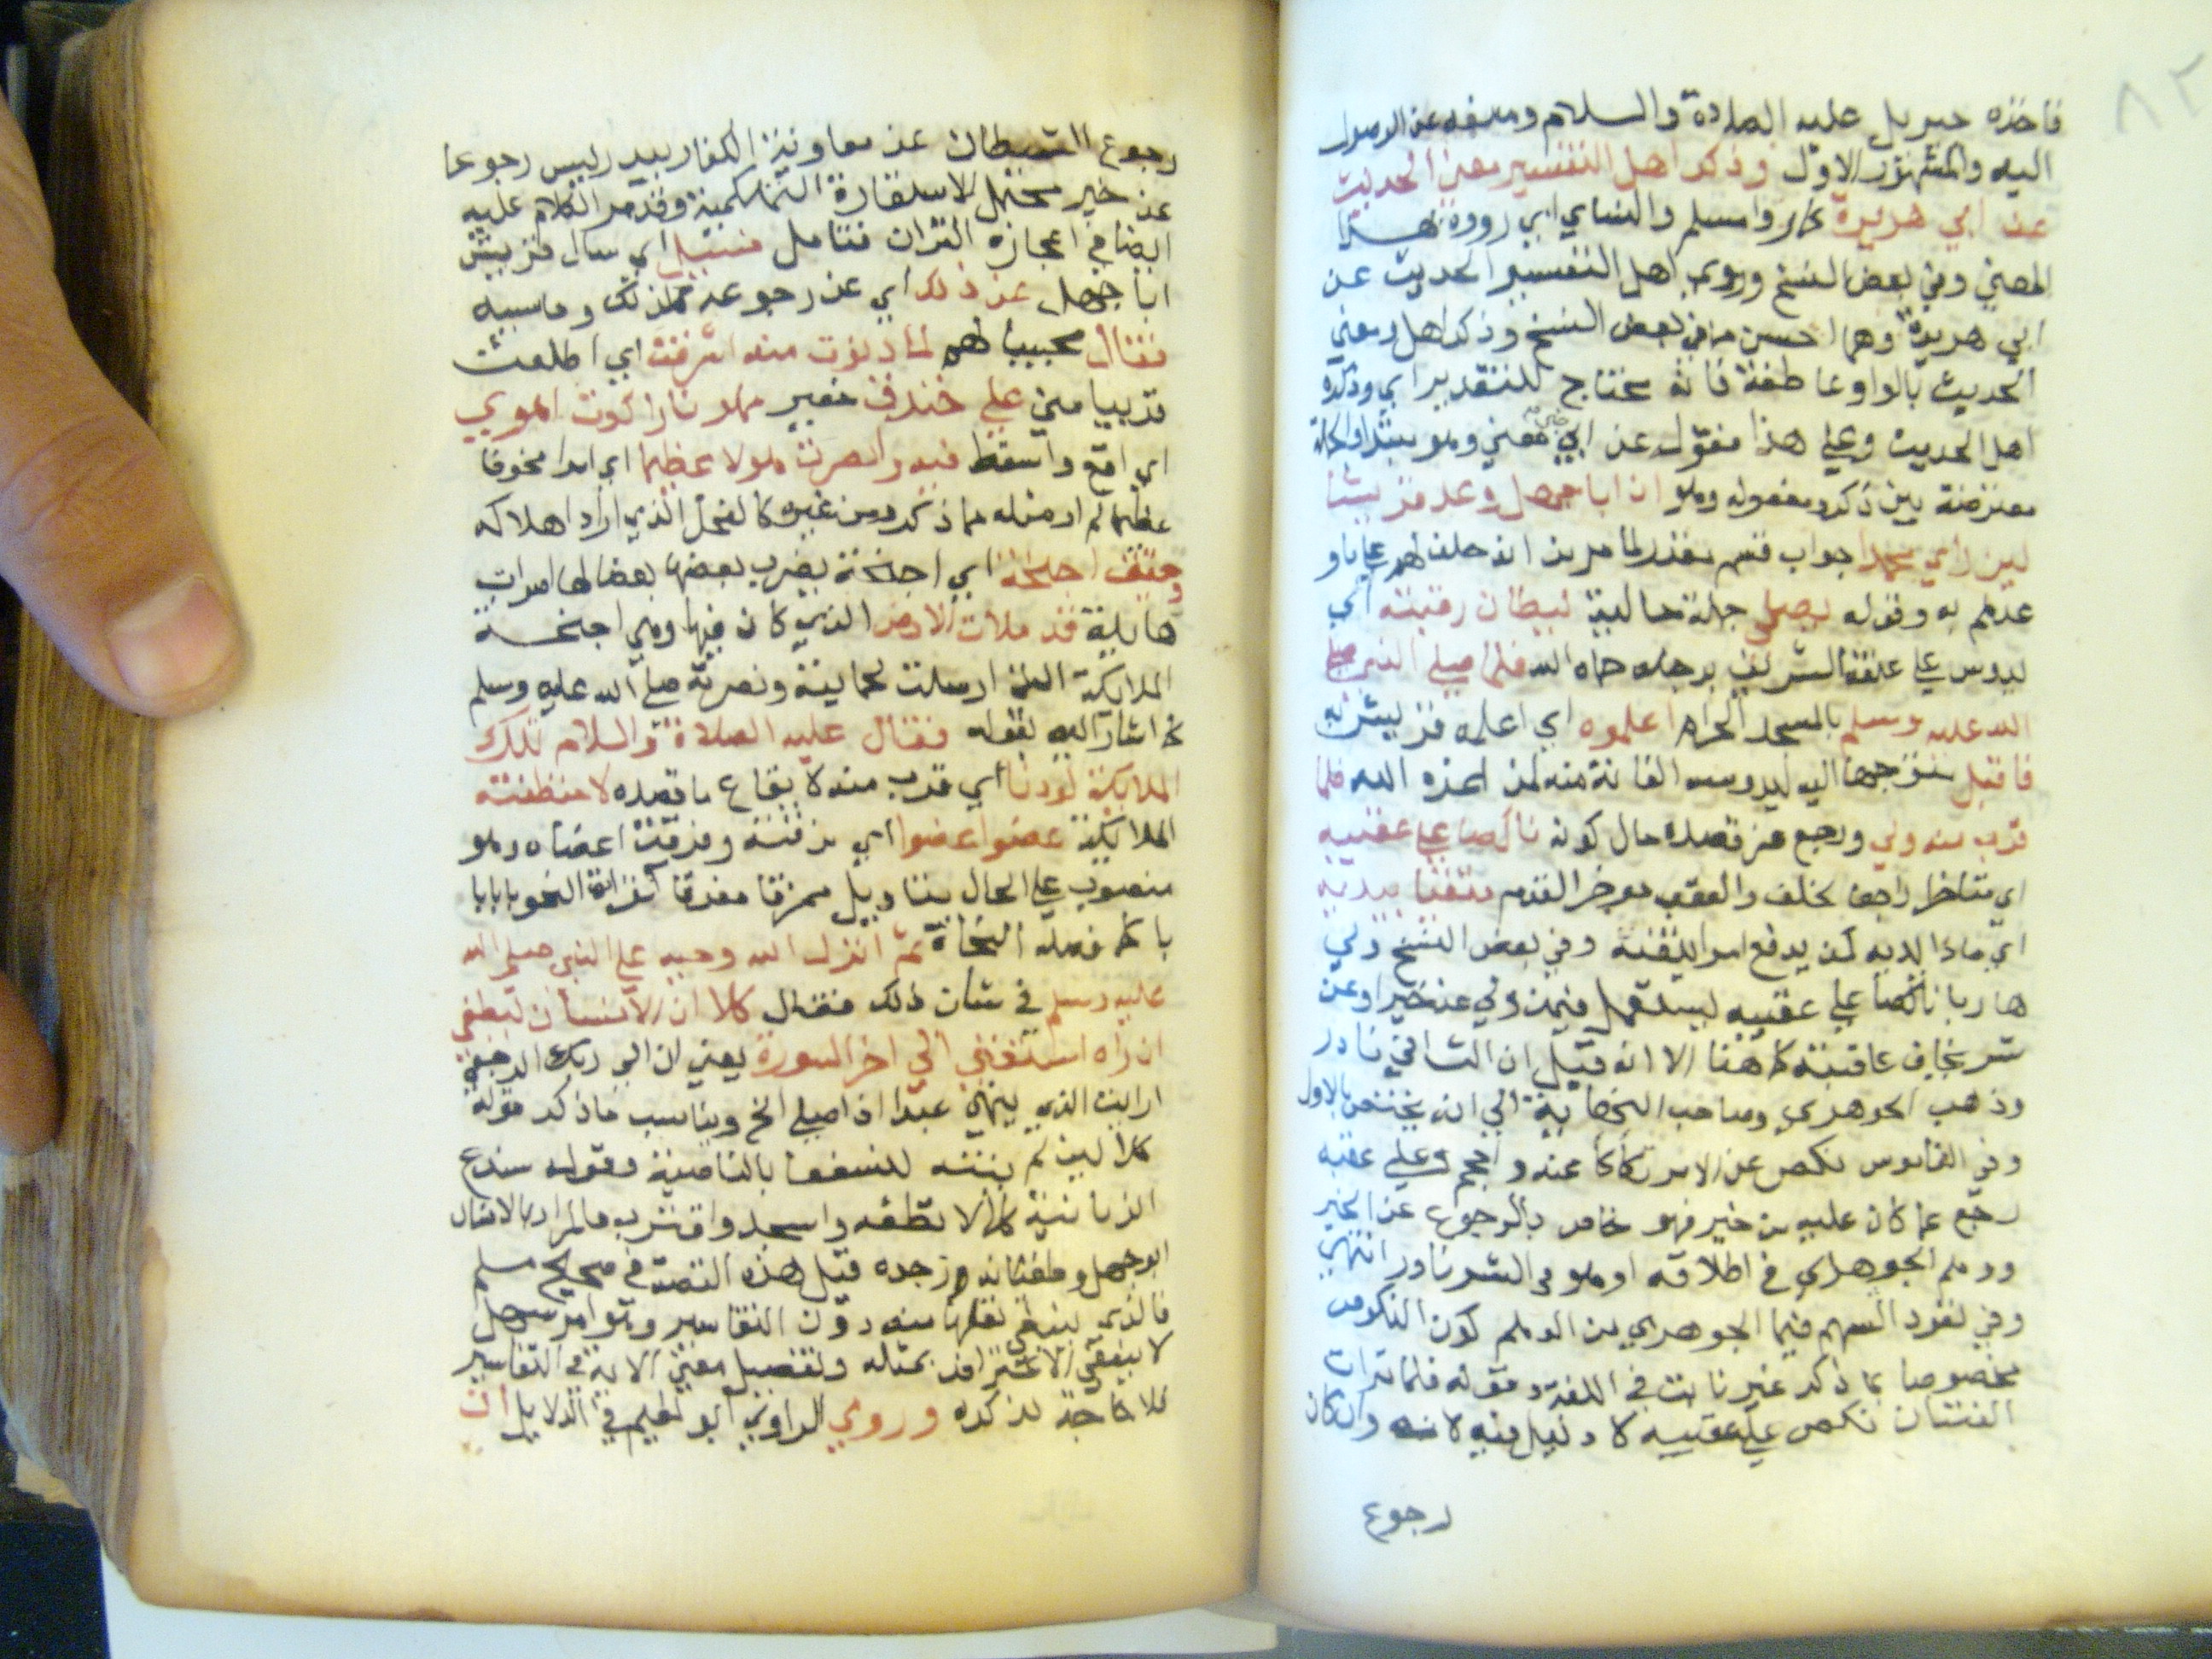 ٨٢
فاخذه جبريل عليه الصلاة والسلام ومنعه عن الوصول
اليه والمشهور الاول وذكر اهل التفسير معني الحديث
عن ابي هريرة كما روا مسلم والنساي ابي رووه بهذا
المعني وفي بعض النسخ وروي اهل التفسير الحديث عن
ابي هريرة وهما احسن مما في بعض النسخ وذكر اهل ومعني
الحديث بالواو عاطفة فانه يحتاج للتقدير اي وذكره
اهل الحديث وعلي هذا فقوله عن ابي معني وهو مبتدا والجملة
معترضة بين ذكر ومفعوله وهو ان ابا جهل وعد قريشا
لين راي محمدا جواب قسم مقدر لما مر من انه حلف لهم
عدهم به وقوله يصلي جملة حالية ليطان رقبته اي
يدوس علي عنقه الشريف برجله حماه الله فلما صلي النبي صلي
الله عليه وسلم بالمسجد الحرام اعلموه اي اعلمه قريش به
فاقبل متوجها اليه ليدوسه الفا نة منه لمن اعزه الله فلما
قرب منه ولي ورجع عن قصده حال كونه ناكصا علي عقبيه
اي متاخرا راجعا لخلف والعقب موخر القدم متقيا بيديه
اي مادا لديه كمن يدفع امرا يتقيه وفي بعض النسخ ولي
هاربا ناكصا علي عقبيه ليستعمل فيمن ولي عن خير او عن
شر يخاف عاقبته كما هنا الا انه قيل ان الثاني نادر
وذهب الجوهري وصاحب النهاية الي انه يختص بالاول
وفي القاموس نكص عن الامر تكأكأ عنه واحجم وعلي عقبيه
رجع عما كان عليه من خير فهو خاص بالرجوع عن الخير
ووهم الجوهري في اطلاقه او هو في الشر نادر انتهي
وفي نفود السهم فيما للجوهري من الوهم كون النكوص
مخصوصا بما ذكر غير ثابت في اللغة وقوله فلما تراات
الفئتان نكص علي عقبيه لا دليل فيه لانه وان كان
رجوع
رجوع الشيطان عن معاونة الكفار ببدر ليس رجوعا
عن خير محتمل لاستعارة التهكمية وقد مر الكلام عليه
ايضا في اعجازه القران فتامل فسيل اي سال قريش
ابا جهل عن ذلك اي عن رجوعه كذلك وما سببه
فقال مجيبا لهم لما دنوت منه اشرفت اي اطلعت
قريبا مني علي خندق حفير مملو نارا كدت اهوي
اي اقع واسقط فيه وابصرت هولا عظيما اي امرا مخوفا
عظيما لم ار مثله مما ذكر ومن غيره كالفحل الذي اراد اهلاكه
وخفق اجنحة اي اجنحة يضرب بعضها بعضا لها اصوات
هايلة قد ملات الارض الذي كان فيها وهي اجنحة
الملايكة التي ارسلت لحمايته ونصرته صلي الله عليه وسلم
كما اشار اليه بقوله فقال عليه الصلاة والسلام تلك
الملايكة لو دنا اي قرب منه لايقاع ما قصده لاختطفته
الملايكة عضوا عضوا اي مزقته وفرقت اعضاه وهو
منصوب علي الحال بتاويل ممزقا مفرقا كقراة النحو بابا بابا
كما فصله النحاة ثم انزل الله وحيه علي النبي صلي الله
عليه وسلم في شان ذلك فقال كلا ان الانسان ليطغي
ان راه استغني الي اخر السورة يعني ان الي ربك الرجعي
ارايت الذي ينهي عبدا اذا صلي الخ ويناسب ما ذكر قوله
كلا لين لم ينته لنسفعا بالناصية وقوله سندع
الزبانية كلا لا تطعه واسجد واقترب فالمراد بالانسان
ابو جهل وطغيانه وزجره قيل هذه القصة في صحيح مسلم
فالذي ينبغي نقلها منه دون التفاسير وهو امر سهل
لا ينبغي الاعتراض بمثله وتفصيل معني الاية في التفاسير
فلا حاجة لذكره وروي الراوي ابو نعيم في الدلايل ان